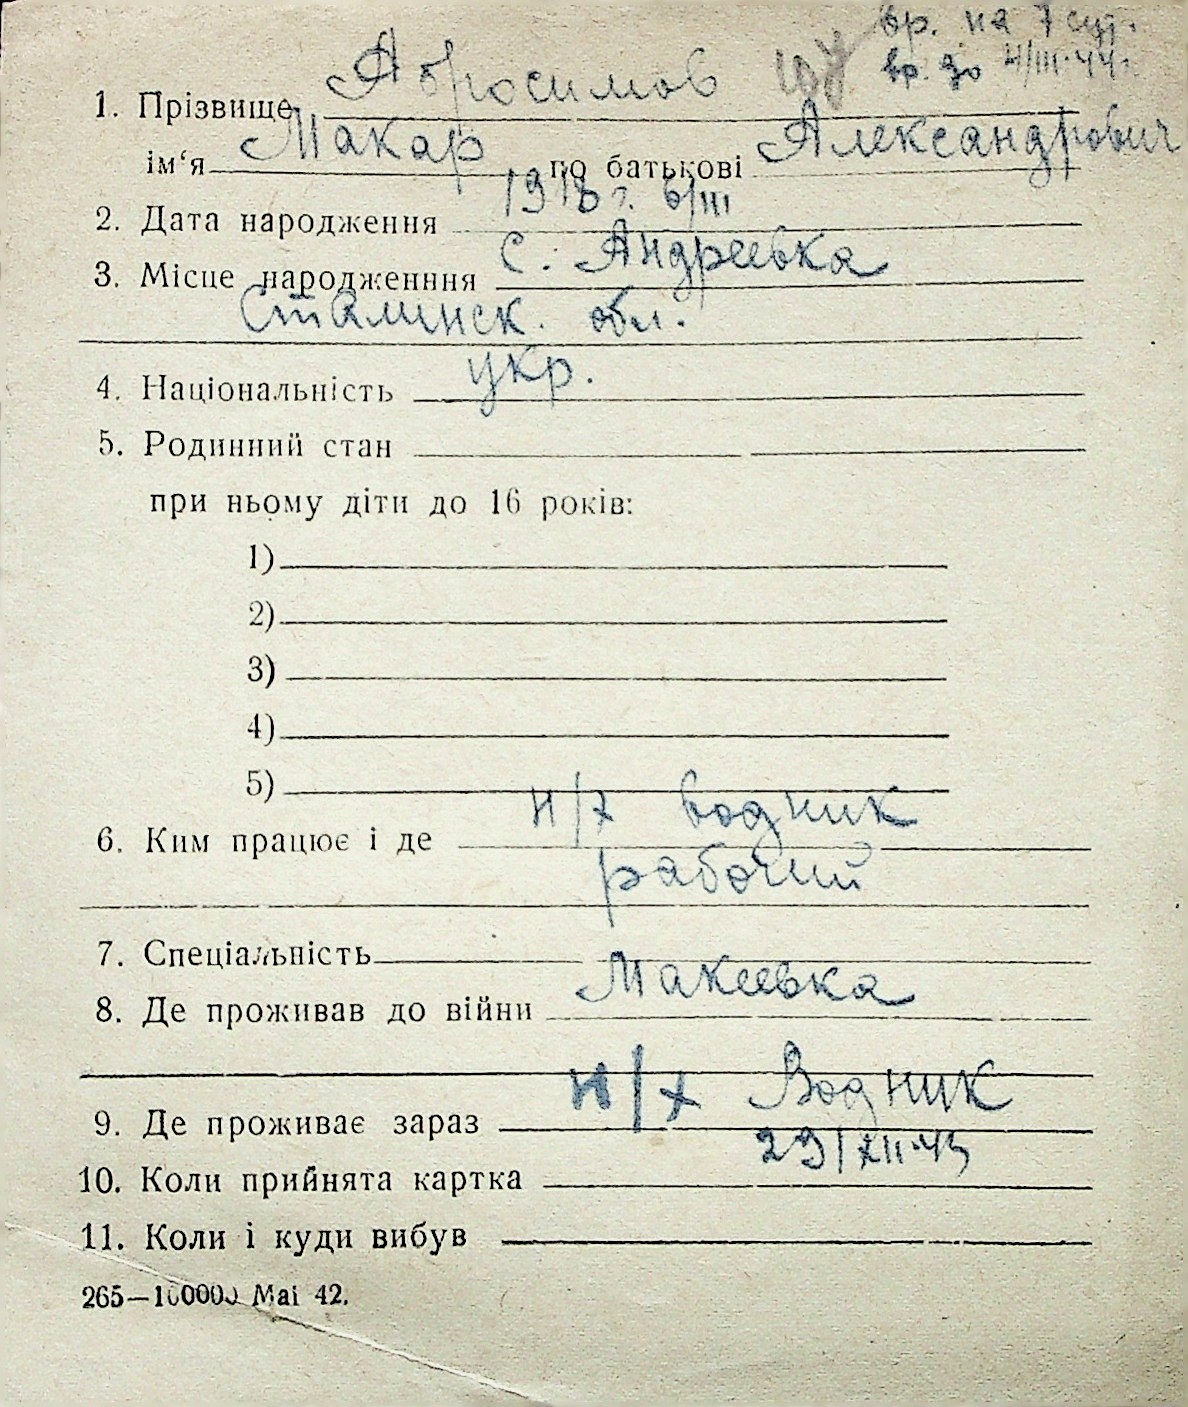 вр. на 7 сут.
вр. до 4/III.44г.
1. Прізвище Абросимов
ім‘я Макар по батькові Александрович
2. Дата народження 1918 г. 6/III
3. Місце народженння с. Андреевка
Сталинск. обл.
4. Національність укр.
5. Родинний стан
при ньому діти до 16 років:
1)
2)
3)
4)
5)
6. Ким працює і де н/х водник
рабочий
7. Спеціальність
8. Де проживав до війни Макеевка
9. Де проживає зараз н/х Водник
10. Коли прийнята картка 29/XII.43
11. Коли і куди вибув
265—100000 Mai 42.